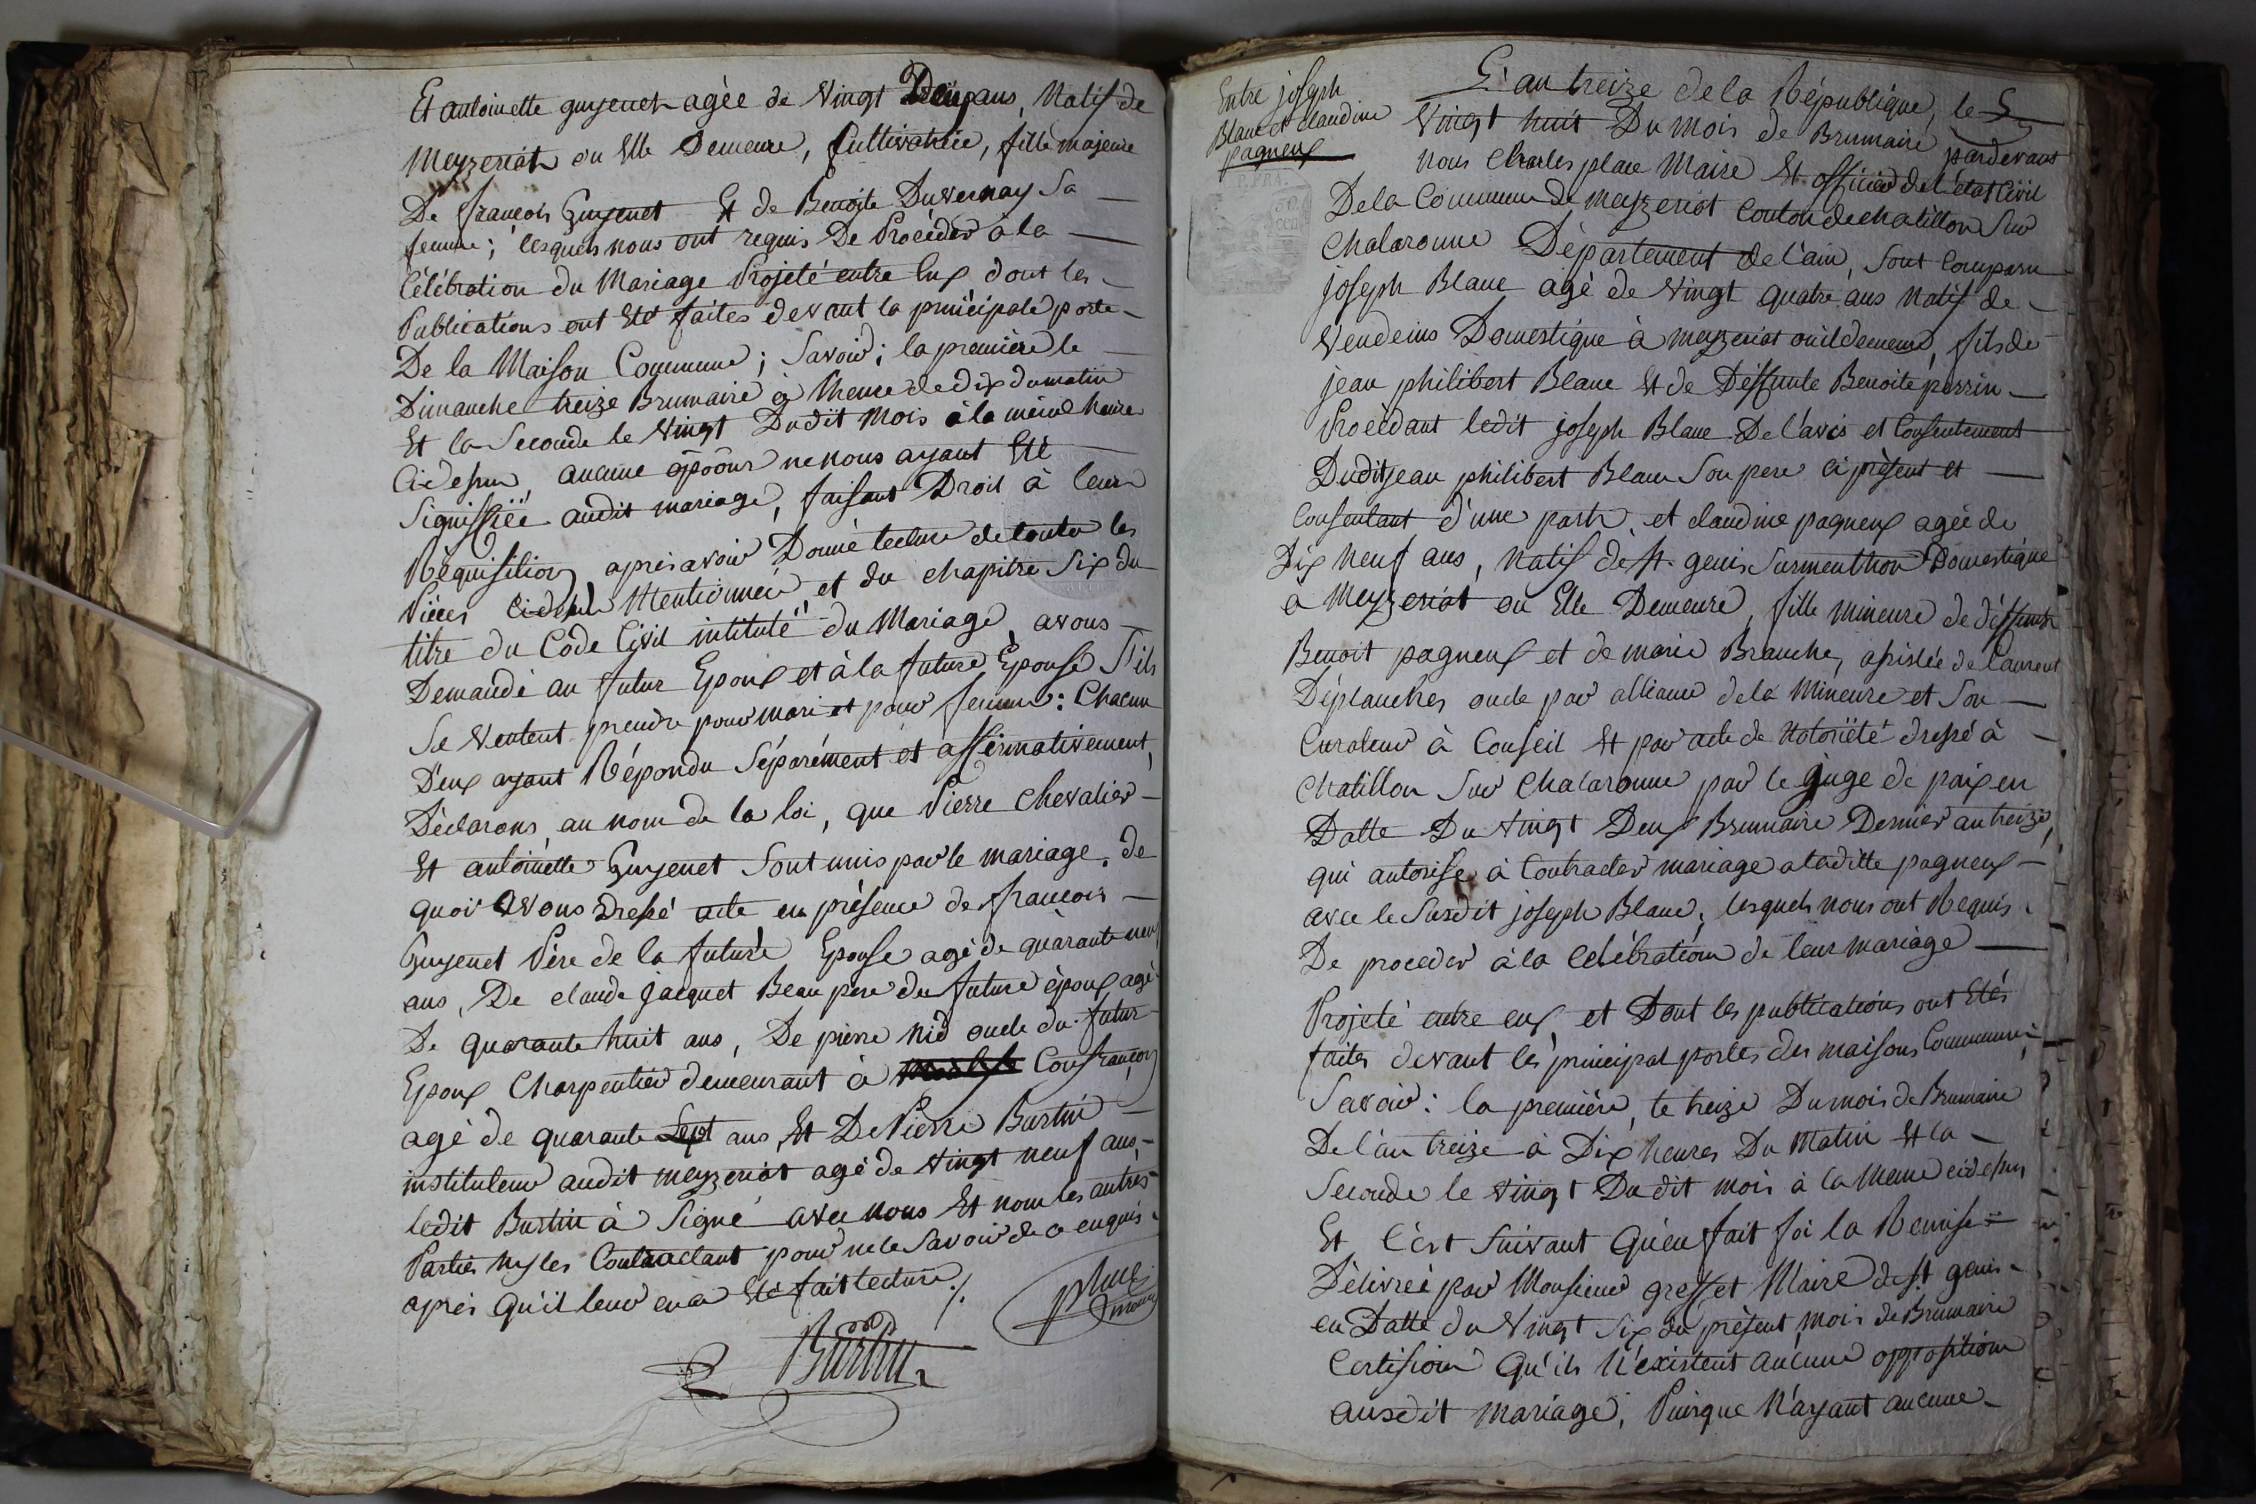 Et antoinette guyenet agée de Vingt Deux ans, Natif de
Meyzeriat ou Elle Demeure, Cultivatrice, fille majeure
De francois Guyenet Et de Benoite Duvernay Sa
femme; lesquels nous ont requis De Procéder à la
Célébration du Mariage Projeté entre Eux dont les
Publications ont Eté faites devant la principale porte
De la Maison Commune; Savoir; la première le
Dimanche treize Brumaire à l'heure de dix du matin
Et la Seconde le Vingt Dudit Mois à la même heure
Ci dessus, aucune oppôôn ne nous ayant Eté
Signiffiée audit mariage, faisant Droit à leur
Réquisition, après avoir Donné lecture de toutes les
Pièces Ci dessus Mentionnée et du chapitre Six du
titre du Code Civil intitulé du Mariage, avons
Demandé au futur Epoux et à la future Epouse S'ils
Se Veulent prendre pour mari et pour femme: Chacun
D'eux ayant Répondu Séparément et affirmativement,
Déclarons, au nom de la loi, que Pierre Chevalier
Et antoinette Guyenet Sont unis par le mariage. de
quoi avons Dressé acte en présence de francois
Guyenet Père de la future Epouse agé de quarante neuf
ans, De claude Jacquet Beau pere du future époux agé
De quarante huit ans, De pierre Nid oncle du futur
Epoux Charpentier demeurant à Confrançon
agé de quarante Sept ans, Et De Pierre Burtin
instituteur audit meyzeriat agé de vingt neuf ans,
ledit Burtin à Signé avec nous Et nom les autres
Parties ny les Contractant pour ne le Savoir de ce enquis
après Qu'il leur en a Eté fait lecture ./.
place
maire
Burtin
Entre joseph
Blanc et claudine
pagneux
L'an treize de la République, le
Vingt huit Du mois de Brumaire pardevant
Nous Charles place Maire Et officier de l'état Civil
De la Commune De meyzeriat Conton de chatillon Sur
Chalaronne Département de l'ain, Sont Comparu
joseph Blanc agé de Vingt quatre ans Natif de
Vendeins Domestique à meyzeriat ou il demeure, fils de
jean philibert Blanc Et de Deffunte Benoite perrin
Procèdant ledit joseph Blanc De l'avis et Consentement
Dudit jean philibert Blanc Son pere ci présent et
Consentant d'une part, et claudine pagneux agée de
Dix Neuf ans, Natif de St. genis Surmenthon Domestique
a Meyzeriat ou Elle Demeure, fille mineure de déffunt
Benoit pagneux et de marie Branche, assistée de Laurent
Déplanches oncle par alliance de la Mineure et Son
Curateur à Conseil Et par acte de Notoriété dressé à
Chatillon Sur Chalaronne par le juge de paix en
Datte Du Vingt Deux Brumaire Dernier an treize,
qui autorise à Contracter mariage a laditte pagneux
avec le Susdit joseph Blanc; lesquels nous ont Requis
De proceder à la Célébration de leur mariage
Projeté entre eux, et Dont les publications ont Etés
faites devant les principal portes des maisons Commune;
Savoir: la première, le treize Du mois de Brumaire
De l'an treize à Dix heures Du Matin Et la
Seconde le vingt Du dit mois à la Meme ci dessus
Et C'est Suivant Qu'en fait foi la Remise
Délivrée par Monsieur greffet Maire de St genis
en Datte du Vingt Six du présent mois de Brumaire
Qu'ils N'existent aucune opposition
ausdit mariage; Puisque N'ayant aucune